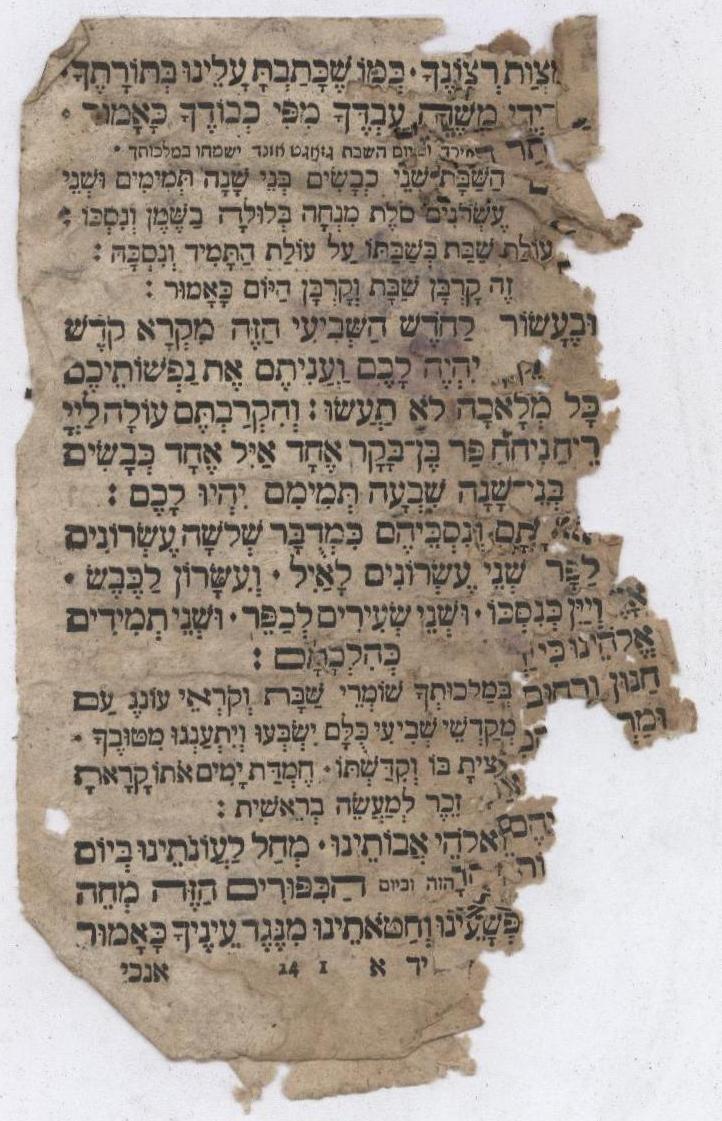 מִצְוֹת רְצוֹנֶךָ · כְּמוֹ שֶׁכָּתַבְתָּ עָלֵינוּ בְּתוֹרָתֶךָ ·
יְדֵי מֹשֶׁה עַבְדֶּךָ מִפִּי כְבוֹדֶךָ כָּאָמוּר ·
יום השבת זאגט אונד ישמחו במלכותך ·
הַשַּׁבָּת שְׁנֵי כְבָשִׂים בְּנֵי שָׁנָה תְּמִימִים וּשְׁנֵי
עֶשְׂרֹנִים סֹלֶת מִנְחָה בְּלוּלָה בַשֶּׁמֶן וְנִסְכּוֹ :
עוֹלַת שַׁבַּת בְּשַׁבַּתּוֹ עַל עוֹלַת הַתָּמִיד וְנִסְכָּהּ :
זֶה קָרְבַּן שַׁבָּת וְקָרְבַּן הַיּוֹם כָּאָמוּר :
וּבֶעָשׂוֹר לַחֹדֶשׁ הַשְּׁבִיעִי הַזֶּה מִקְרָא קֹדֶשׁ
יִהְיֶה לָכֶם וְעִנִּיתֶם אֶת נַפְשׁוֹתֵיכֶם
כָּל מְלָאכָה לֹא תַעֲשׂוּ : וְהִקְרַבְתֶּם עוֹלָה לַיְיָ
רֵיחַ נִיחֹחַ פַּר בֶּן־בָּקָר אֶחָד אַיִל אֶחָד כְּבָשִׂים
בְּנֵי־שָׁנָה שִׁבְעָה תְּמִימִם יִהְיוּ לָכֶם :
וְנִסְכֵּיהֶם כִּמְדֻבָּר שְׁלֹשָׁה עֶשְׂרוֹנִים
לַפָּר שְׁנֵי עֶשְׂרוֹנִים לָאַיִל · וְעִשָּׂרוֹן לַכֶּבֶשׂ ·
וְיַיִן כְּנִסְכּוֹ · וּשְׁנֵי שְׂעִירִים לְכַפֵּר · וּשְׁנֵי תְמִידִים
אֱלֹהֵינוּ כִּי כְּהִלְכָתָם :
חַנּוּן וְרַחוּם בְּמַלְכוּתְךָ שׁוֹמְרֵי שַׁבָּת וְקֹרְאֵי עוֹנֶג עַם
מְקַדְּשֵׁי שְׁבִיעִי כֻּלָּם יִשְׂבְּעוּ וְיִתְעַנְּגוּ מִטּוּבֶךָ ·
בּוֹ וְקִדַּשְׁתּוֹ · חֶמְדַּת יָמִים אֹתוֹ קָרָאתָ
זֵכֶר לְמַעֲשֵׂה בְרֵאשִׁית :
וֵאלֹהֵי אֲבוֹתֵינוּ · מְחַל לַעֲוֹנֹתֵינוּ בְּיוֹם
הזה וביום הַכִּפּוּרִים הַזֶּה מְחֵה
פְּשָׁעֵינוּ וְחַטֹּאתֵינוּ מִנֶּגֶד עֵינֶיךָ כָּאָמוּר
יד א 1 14 אנכי